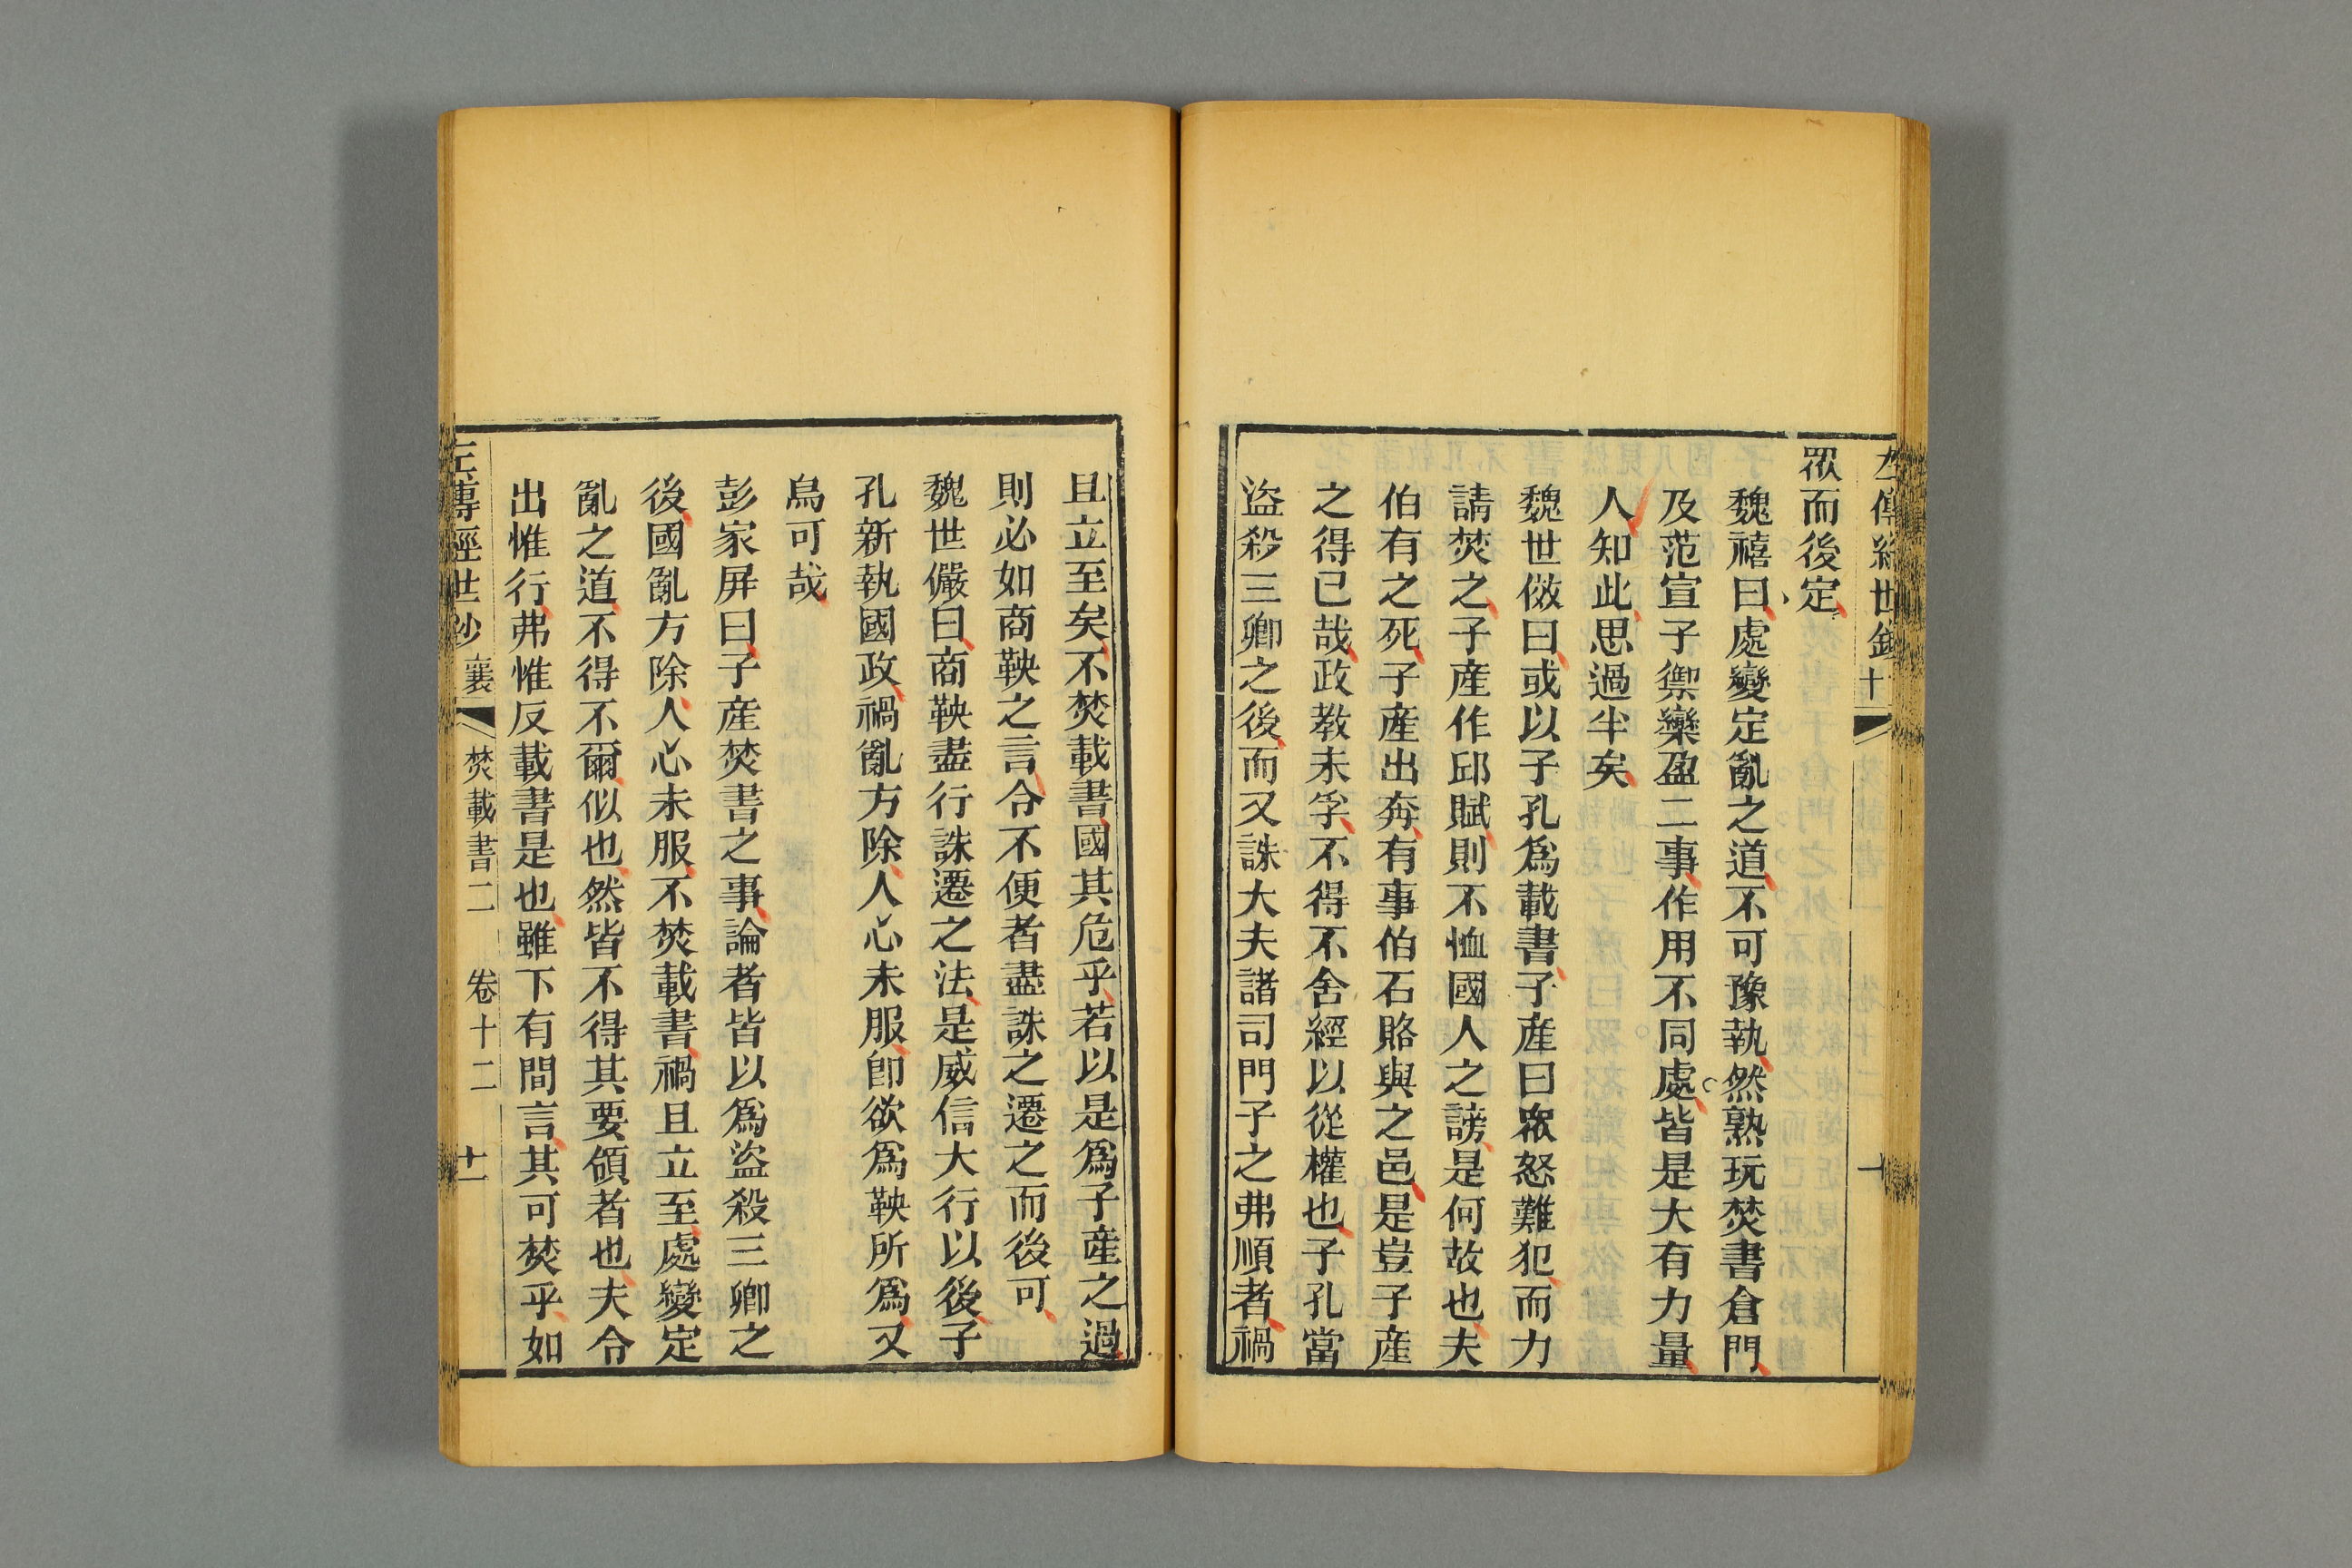 左傳經世鈔 十
十
眾而後定
魏禧曰處變定亂之道不可豫執然熟玩焚書倉門
及范宣子禦欒盈二事作用不同處皆是大有力量
人知此思過半矣
魏世傚曰或以子孔爲載書子產曰眾怒難犯而力
請焚之子產作邱賦則不恤國人之謗是何故也夫
伯有之死子產出奔有事伯石賂與之邑是豈子產
之得已哉政教未孚不得不舍經以從權也子孔當
盜殺三卿之後而又誅大夫諸司門子之弗順者禍
且立至矣不焚載書國其危乎若以是爲子產之過
則必如商鞅之言令不便者盡誅之遷之而後可
魏世儼曰商鞅盡行誅遷之法是威信大行以後子
孔新執國政禍亂方除人心未服卽欲爲鞅所爲又
烏可哉
彭家屏曰子產焚書之事論者皆以爲盜殺三卿之
後國亂方除人心未服不焚載書禍且立至處變定
亂之道不得不爾似也然皆不得其要領者也夫令
出惟行弗惟反載書是也雖下有間言其可焚乎如
左傳經世鈔 襄 焚載書二 卷十二 十一